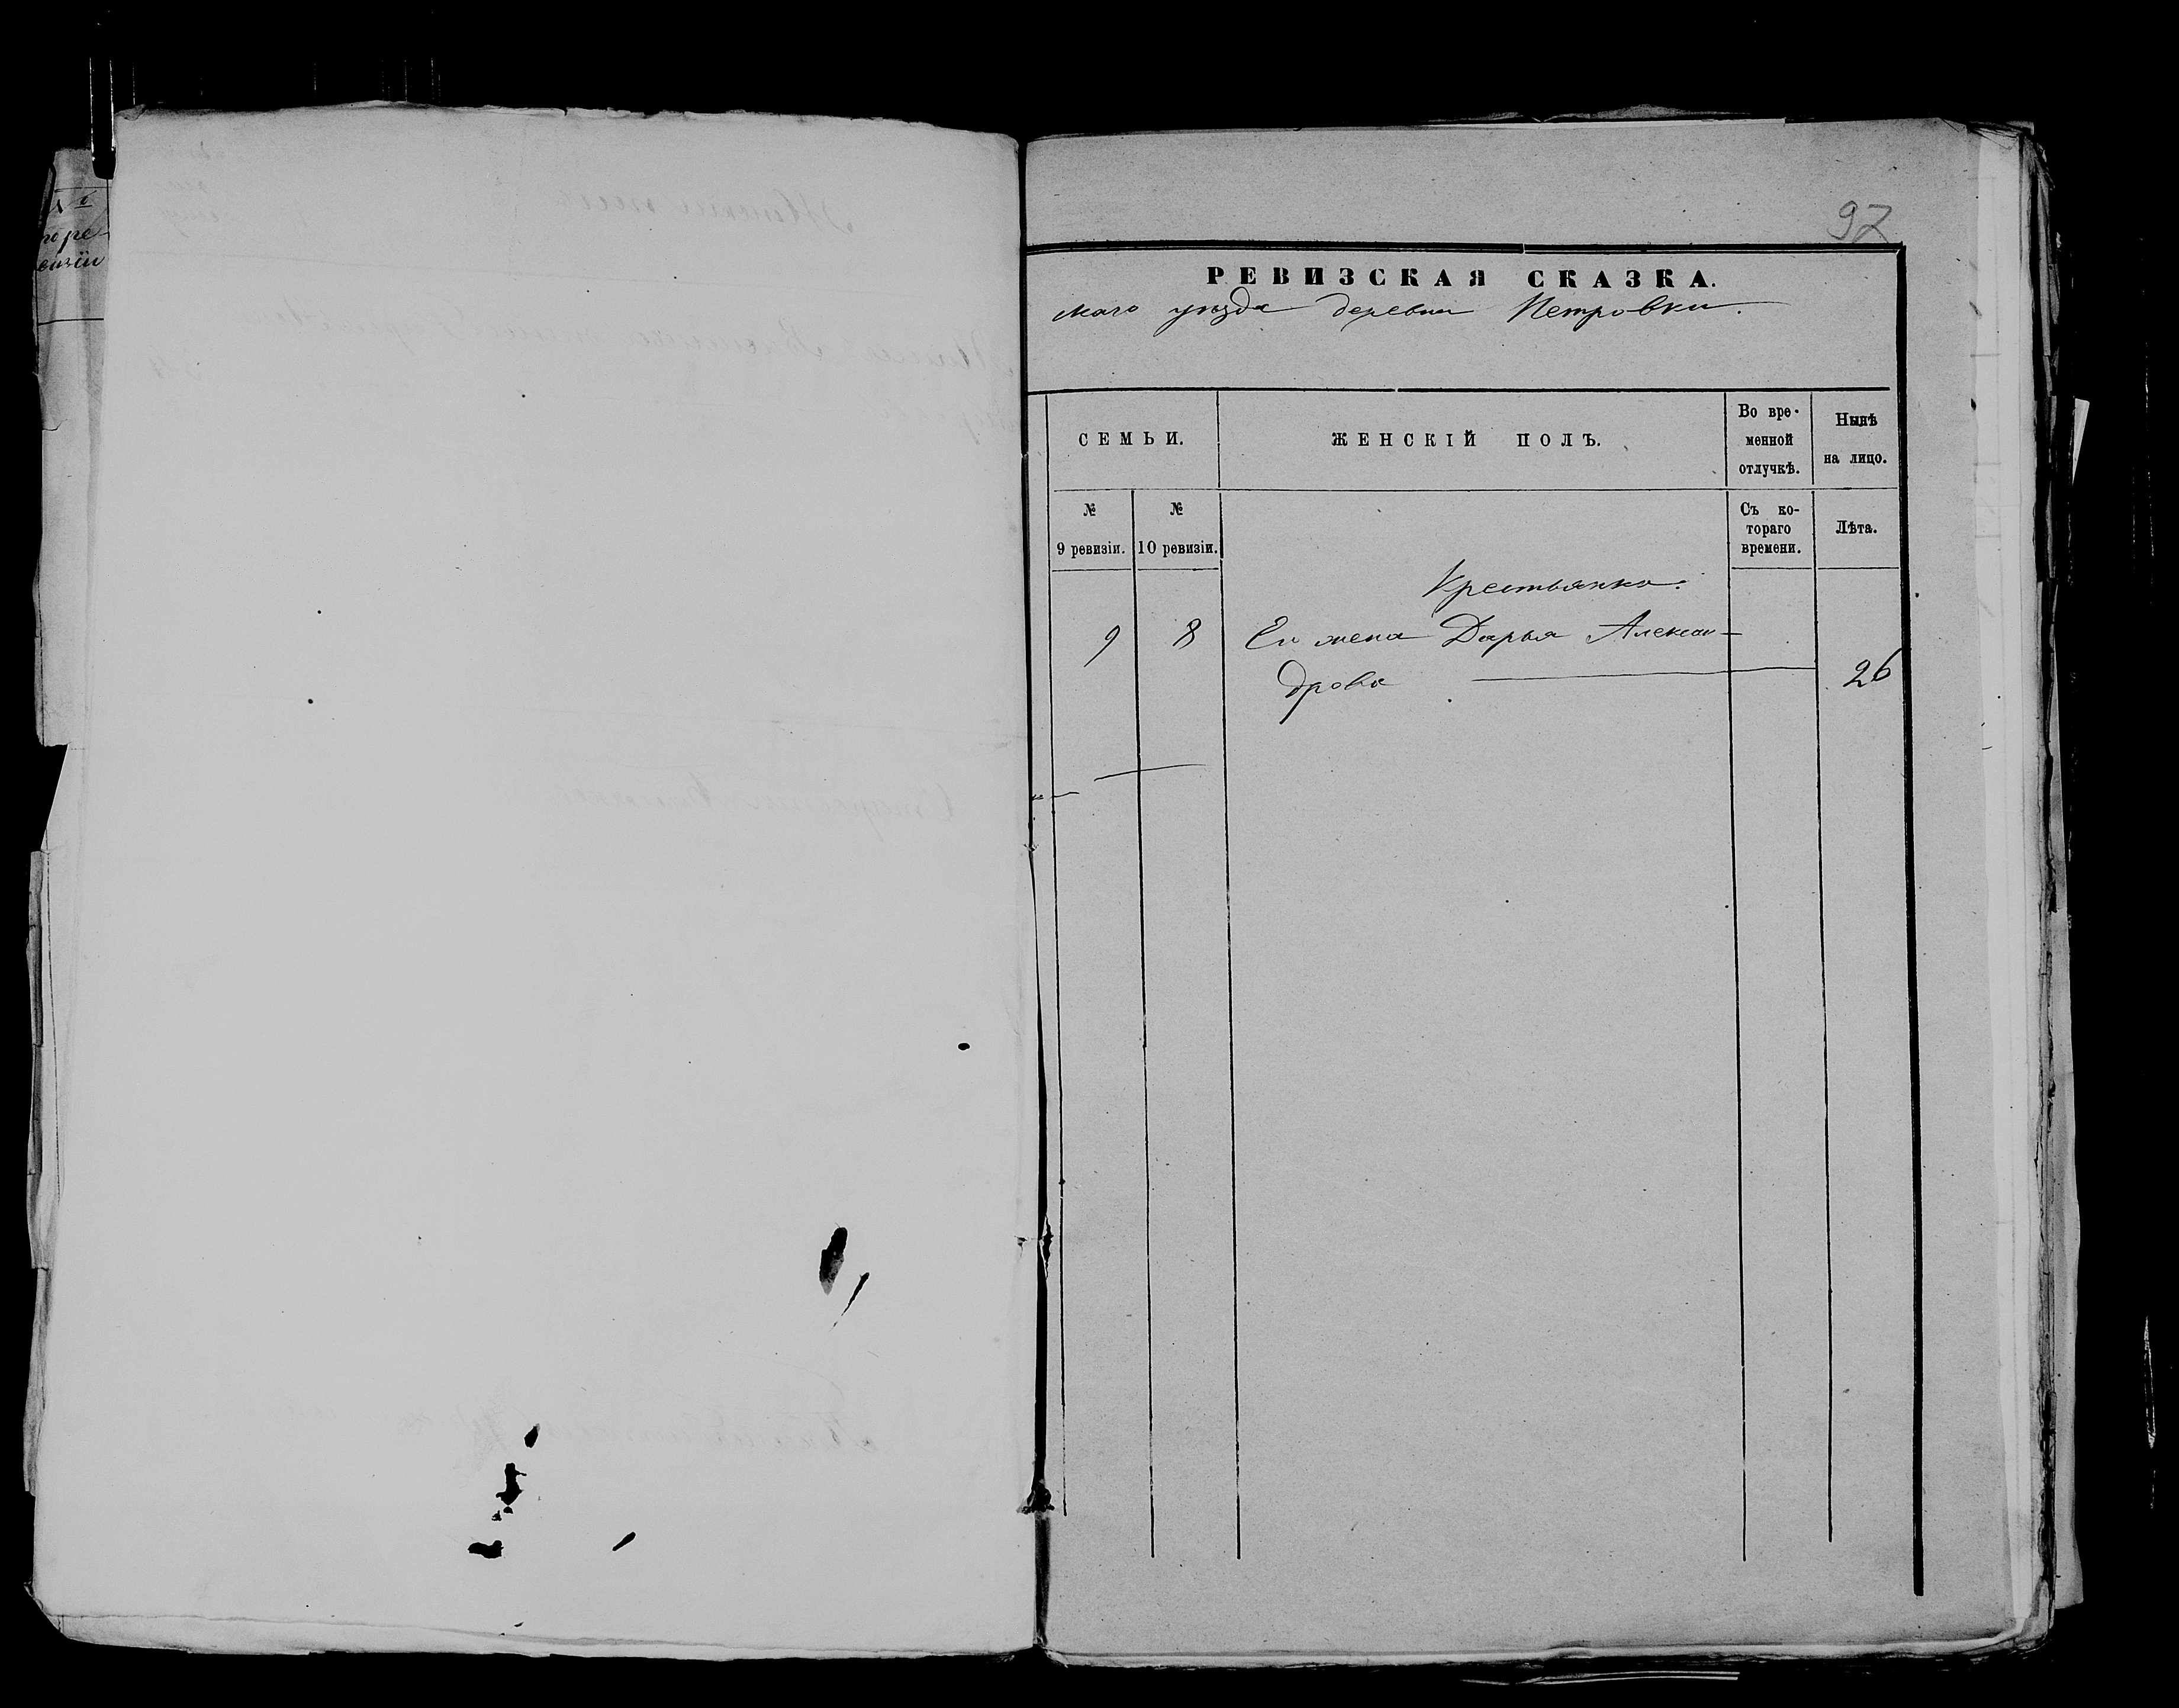 №
по ре-
визіи
97
РЕВИЗСКАЯ СКАЗКА.
скаго уѣзда деревни Петровки.
СЕМЬИ.
ЖЕНСКІЙ ПОЛЪ.
Во вре-
менной
отлучкѣ.
Нынѣ
на лицо.
№
9 ревизіи.
№
10 ревизіи.
Съ ко-
тораго
времени.
Лѣта.
Крестьянка.
9 8 Ея жена Дарья Алексан-
дрова 26